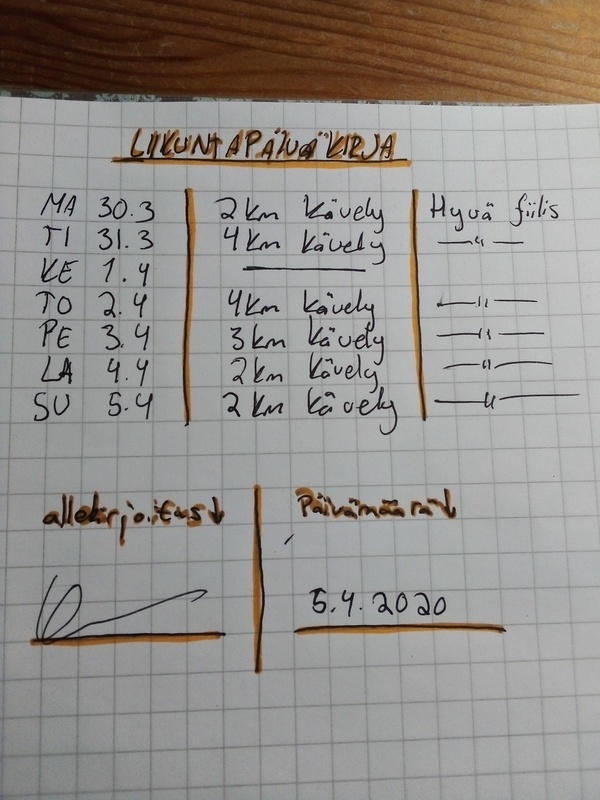 LIIKUNTAPÄIVÄKIRJA
MA 30.3 2km Kävely Hyvä fiilis
TI 31.3 4km Kävely —"—
KE 1.4 ———
TO 2.4 4km Kävely —"—
PE 3.4 3km Kävely —"—
LA 4.4 2km Kävely —"—
SU 5.4 2km Kävely —"—
allekirjoitus↓ Päivämäärä↓
5.4.2020